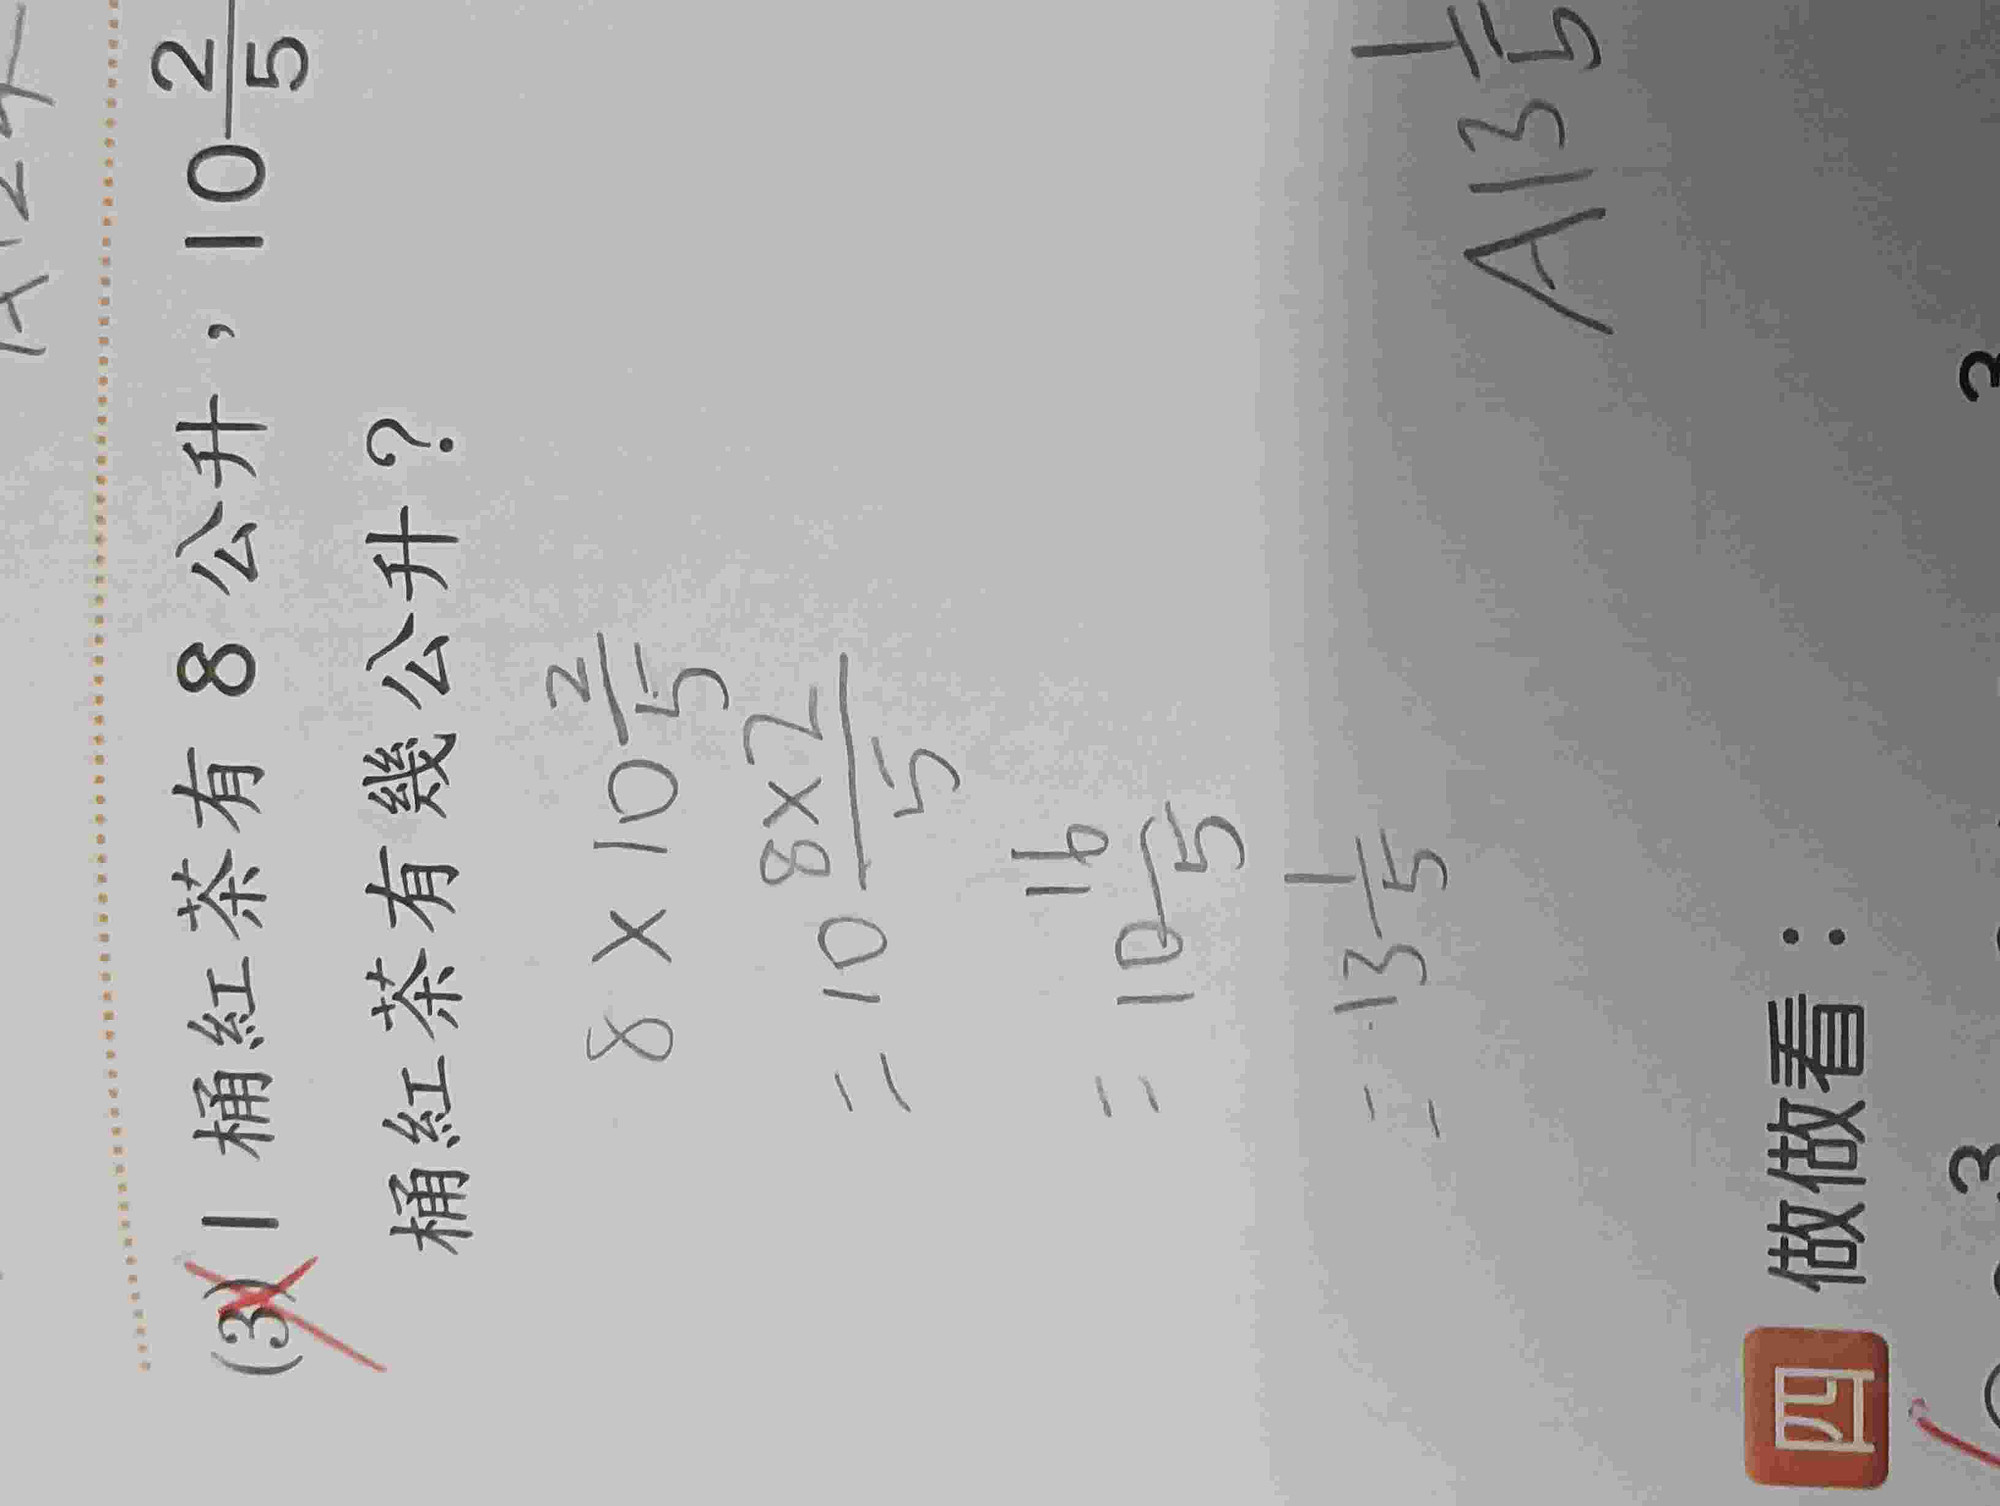 (3) 1 桶紅茶有 8 公升，10 2/5
桶紅茶有幾公升？
8 × 10 2/5
= 10 8×2/5
= 10 16/5
= 13 1/5
A 13 1/5
四 做做看：
3 3